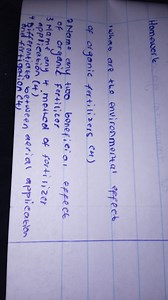 Homework
1 What are the environmental effect
of organic fertilizers (4)
2 Name any two beneficial effect
of organic fertilizer
3 Name any 4 method of fertilizer
application (4)
4 Differentiate between aerial application
and fertigation (4)